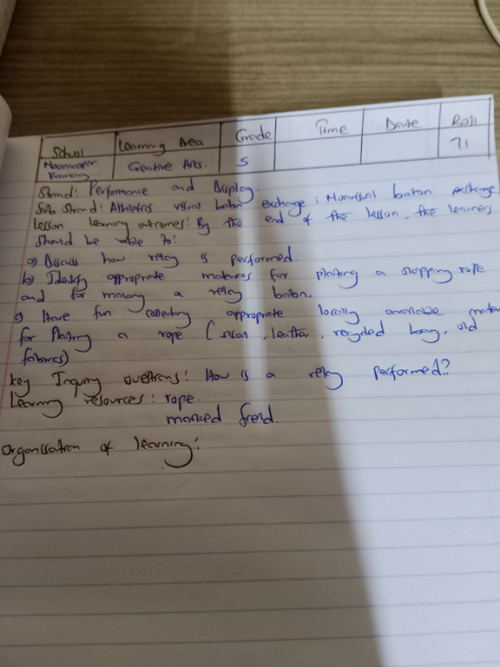 School Learning Area Grade Time Date Roll
Primary Creative Arts. 5 71
Strand: Performance and Display.
Sub Strand: Athletics visual baton exchange: Nonvisual baton exchange
Lesson learning outcomes: By the end of the lesson, the learners
should be able to:
a) Discuss how relay is performed.
b) Identify appropriate materials for plaiting a skipping rope
and for making a relay baton.
c) Have fun collecting appropriate locally available
for Plaiting a rope (sisal, leather, recycled old
fabrics)
Key Inquiry questions: How is a relay performed?
Learning resources: rope.
marked
Organisation of learning: